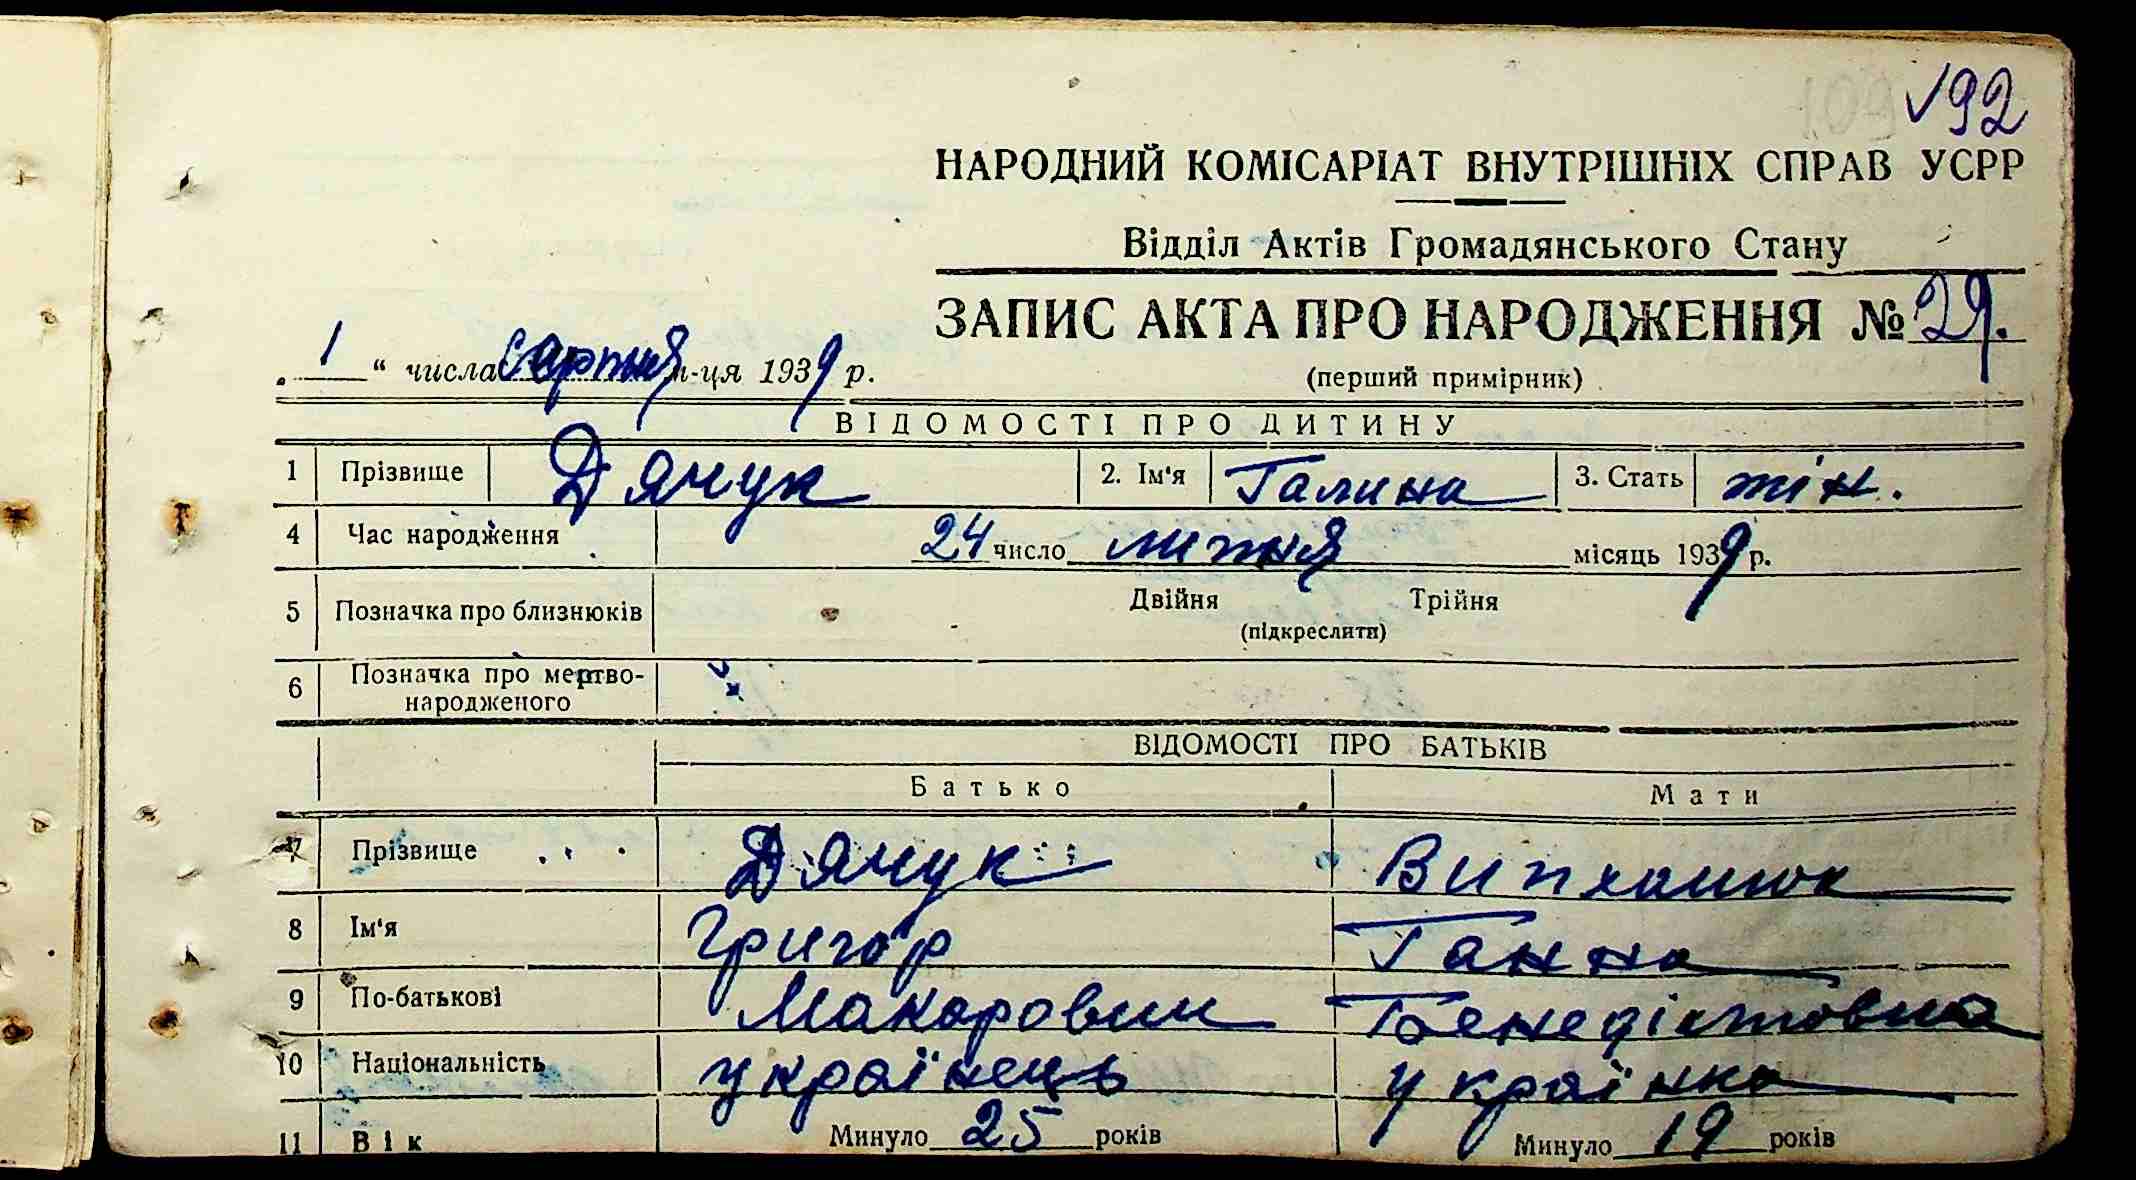 192
НАРОДНИЙ КОМІСАРІАТ ВНУТРІШНІХ СПРАВ УСРР
Відділ Актів Громадянського Стану
ЗАПИС АКТА ПРО НАРОДЖЕННЯ № 29.
„ 1 “ числа серпня м-ця 1939 р.
(перший примірник)
ВІДОМОСТІ ПРО ДИТИНУ
1 Прізвище Дячук 2. Ім'я Галина 3. Стать жін.
4 Час народження 24 число липня місяць 1939 р.
5 Позначка про близнюків Двійня Трійня
(підкреслити)
6 Позначка про мертво-
народженого
ВІДОМОСТІ ПРО БАТЬКІВ
Батько Мати
7 Прізвище Дячук Випханюк
8 Ім'я Григор Ганна
9 По-батькові Макарович Бенедіктовна
10 Національність українець українка
11 Вік Минуло 25 років Минуло 19 років